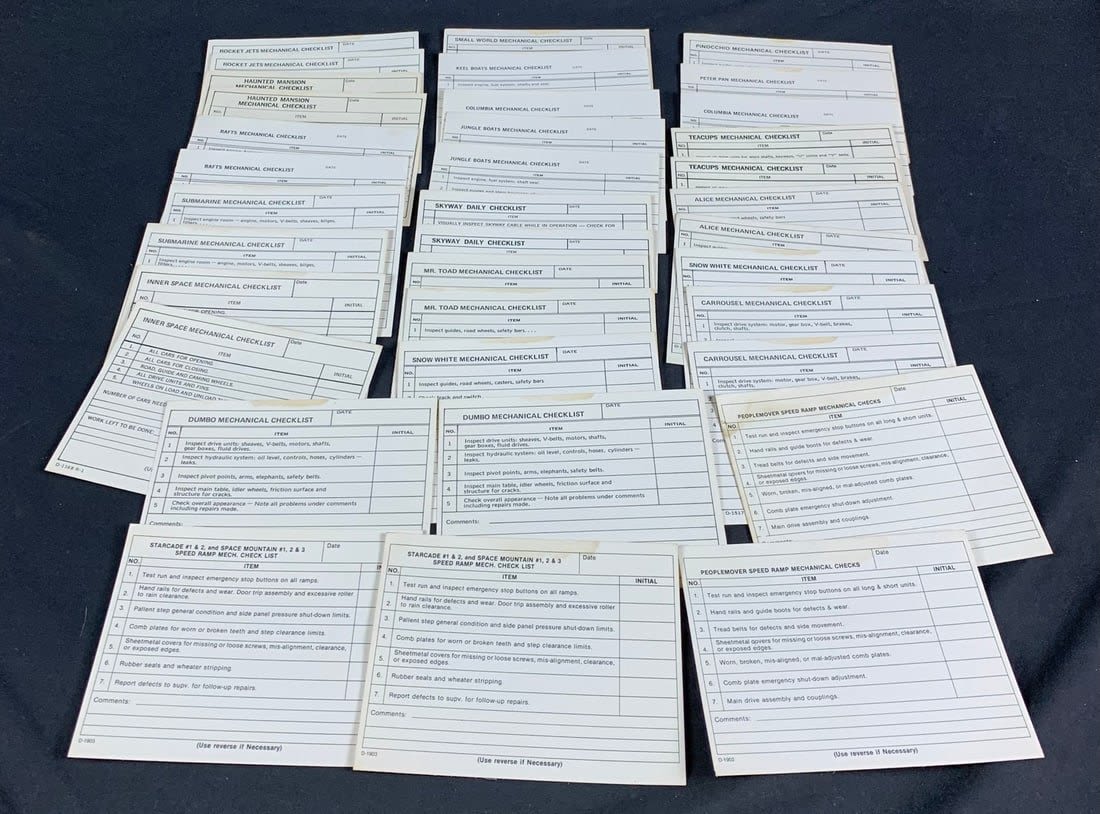 ROCKET JETS MECHANICAL CHECKLIST DATE
ROCKET JETS MECHANICAL CHECKLIST DATE
NO. ITEM INITIAL
HAUNTED MANSION
MECHANICAL CHECKLIST Date
HAUNTED MANSION
MECHANICAL CHECKLIST Date
NO. ITEM INITIAL
RAFTS MECHANICAL CHECKLIST DATE
NO. ITEM INITIAL
RAFTS MECHANICAL CHECKLIST DATE
NO. ITEM INITIAL
SUBMARINE MECHANICAL CHECKLIST DATE
NO. ITEM INITIAL
1 Inspect engine room — engine, motors, V-belts, sheaves, bilges,
SUBMARINE MECHANICAL CHECKLIST DATE
NO. ITEM INITIAL
1 Inspect engine room — engine, motors, V-belts, sheaves, bilges,
INNER SPACE MECHANICAL CHECKLIST Date
NO. ITEM INITIAL
INNER SPACE MECHANICAL CHECKLIST Date
NO. ITEM INITIAL
1. ALL CARS FOR OPENING.
2. ALL CARS FOR CLOSING.
3. ROAD, GUIDE AND CAMING WHEELS.
4. ALL DRIVE UNITS AND FINS.
5. WHEELS ON LOAD AND UNLOAD
NUMBER OF CARS
WORK LEFT TO BE DONE.
SMALL WORLD MECHANICAL CHECKLIST DATE
ITEM INITIAL
KEEL BOATS MECHANICAL CHECKLIST DATE
NO. ITEM INITIAL
1 Inspect engine, fuel system, shafts and
COLUMBIA MECHANICAL CHECKLIST DATE
JUNGLE BOATS MECHANICAL CHECKLIST DATE
NO. ITEM INITIAL
JUNGLE BOATS MECHANICAL CHECKLIST DATE
NO. ITEM INITIAL
1 Inspect engine, fuel system, shaft seal.
SKYWAY DAILY CHECKLIST DATE
ITEM
VISUALLY INSPECT SKYWAY CABLE WHILE IN OPERATION — CHECK FOR
SKYWAY DAILY CHECKLIST DATE
MR. TOAD MECHANICAL CHECKLIST DATE
NO. ITEM INITIAL
MR. TOAD MECHANICAL CHECKLIST DATE
NO. ITEM INITIAL
1 Inspect guides, road wheels, safety bars. . . .
SNOW WHITE MECHANICAL CHECKLIST DATE
NO. ITEM INITIAL
1 Inspect guides, road wheels, casters, safety bars
PINOCCHIO MECHANICAL CHECKLIST DATE
NO. ITEM INITIAL
PETER PAN MECHANICAL CHECKLIST DATE
NO. ITEM INITIAL
COLUMBIA MECHANICAL CHECKLIST DATE
TEACUPS MECHANICAL CHECKLIST Date
NO. ITEM INITIAL
TEACUPS MECHANICAL CHECKLIST Date
NO. ITEM INITIAL
ALICE MECHANICAL CHECKLIST DATE
NO. ITEM INITIAL
ALICE MECHANICAL CHECKLIST DATE
NO. ITEM INITIAL
SNOW WHITE MECHANICAL CHECKLIST DATE
NO. ITEM INITIAL
CARROUSEL MECHANICAL CHECKLIST DATE
NO. ITEM INITIAL
1 Inspect drive system: motor, gear box, V-belt, brakes,
clutch, shafts.
CARROUSEL MECHANICAL CHECKLIST DATE
NO. ITEM INITIAL
1 Inspect drive system: motor, gear box, V-belt, brakes,
clutch, shafts.
DUMBO MECHANICAL CHECKLIST DATE
NO. ITEM INITIAL
1 Inspect drive units: sheaves, V-belts, motors, shafts,
gear boxes, fluid drives.
2 Inspect hydraulic system: oil level, controls, hoses, cylinders —
leaks.
3 Inspect pivot points, arms, elephants, safety belts.
4 Inspect main table, idler wheels, friction surface and
structure for cracks.
5 Check overall appearance — Note all problems under comments
including repairs made.
Comments:
DUMBO MECHANICAL CHECKLIST DATE
NO. ITEM INITIAL
1 Inspect drive units: sheaves, V-belts, motors, shafts,
gear boxes, fluid drives.
2 Inspect hydraulic system: oil level, controls, hoses, cylinders —
leaks.
3 Inspect pivot points, arms, elephants, safety belts.
4 Inspect main table, idler wheels, friction surface and
structure for cracks.
5 Check overall appearance — Note all problems under comments
including repairs made.
Comments:
PEOPLEMOVER SPEED RAMP MECHANICAL CHECKS Date
NO. ITEM INITIAL
1. Test run and inspect emergency stop buttons on all long & short units.
2. Hand rails and guide boots for defects & wear.
3. Tread belts for defects and side movement.
4. Sheetmetal covers for missing or loose screws, mis-alignment, clearance,
or exposed edges.
5. Worn, broken, mis-aligned, or mal-adjusted comb plates.
6. Comb plate emergency shut-down adjustment.
7. Main drive assembly and couplings.
STARCADE #1 & 2, and SPACE MOUNTAIN #1, 2 & 3
SPEED RAMP MECH. CHECK LIST Date
NO. ITEM
1. Test run and inspect emergency stop buttons on all ramps.
2. Hand rails for defects and wear. Door trip assembly and excessive roller
to rain clearance.
3. Pallent step general condition and side panel pressure shut-down limits.
4. Comb plates for worn or broken teeth and step clearance limits.
5. Sheetmetal covers for missing or loose screws, mis-alignment, clearance,
or exposed edges.
6. Rubber seals and wheater stripping.
7. Report defects to supv. for follow-up repairs.
Comments:
D-1903
(Use reverse if Necessary)
STARCADE #1 & 2, and SPACE MOUNTAIN #1, 2 & 3
SPEED RAMP MECH. CHECK LIST Date
NO. ITEM INITIAL
1. Test run and inspect emergency stop buttons on all ramps.
2. Hand rails for defects and wear. Door trip assembly and excessive roller
to rain clearance.
3. Pallent step general condition and side panel pressure shut-down limits.
4. Comb plates for worn or broken teeth and step clearance limits.
5. Sheetmetal covers for missing or loose screws, mis-alignment, clearance,
or exposed edges.
6. Rubber seals and wheater stripping.
7. Report defects to supv. for follow-up repairs.
Comments:
D-1903
(Use reverse if Necessary)
PEOPLEMOVER SPEED RAMP MECHANICAL CHECKS Date
NO. ITEM INITIAL
1. Test run and inspect emergency stop buttons on all long & short units.
2. Hand rails and guide boots for defects & wear.
3. Tread belts for defects and side movement.
4. Sheetmetal covers for missing or loose screws, mis-alignment, clearance,
or exposed edges.
5. Worn, broken, mis-aligned, or mal-adjusted comb plates.
6. Comb plate emergency shut-down adjustment.
7. Main drive assembly and couplings.
Comments:
D-1902
(Use reverse if Necessary)